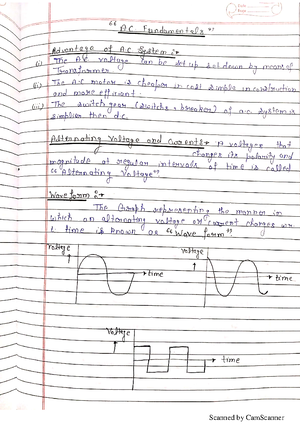 "AC Fundamentals"
Advantage of A.C System :-
(i) The A.C voltage can be set up and down by means of
Transformer.
(ii) The A.C motor is cheaper in cost simple in construction
and more efficient.
(iii) The switch gear (switch, breaker) of a.c system is
simplier then d.c.
Alternating Voltage and Current :- A voltage that
changes its polarity and
magnitude at regular intervals of time is called
"Alternating Voltage"
Wave form :-
The Graph representing the manner in
which an alternating voltage or current changes w.r
t time is known as "Wave form".
Voltage
time
Voltage
time
Voltage
time
Scanned by CamScanner